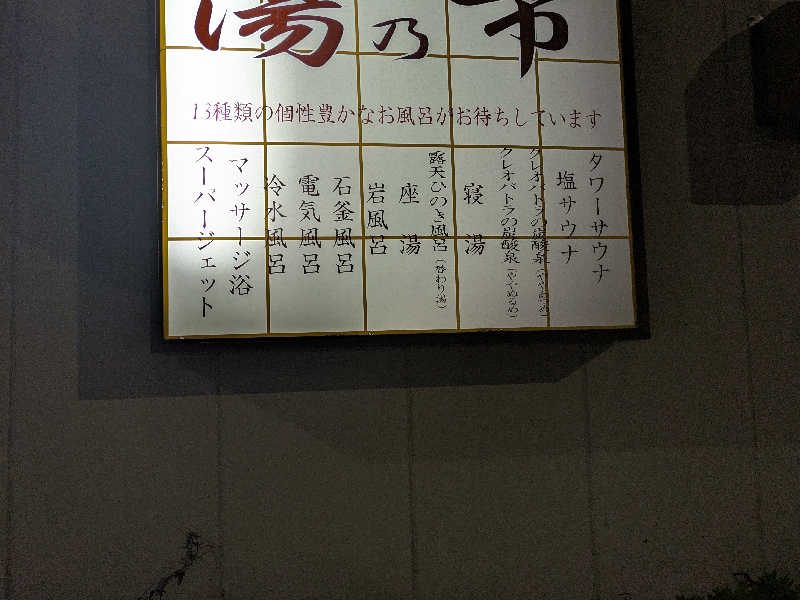 湯乃市
13種類の個性豊かなお風呂がお待ちしています
タワーサウナ
塩サウナ
クレオパトラの炭酸泉(やや熱め)
クレオパトラの炭酸泉(ややぬるめ)
寝湯
露天ひのき風呂(替わり湯)
座湯
岩風呂
石釜風呂
電気風呂
冷水風呂
マッサージ浴
スーパージェット